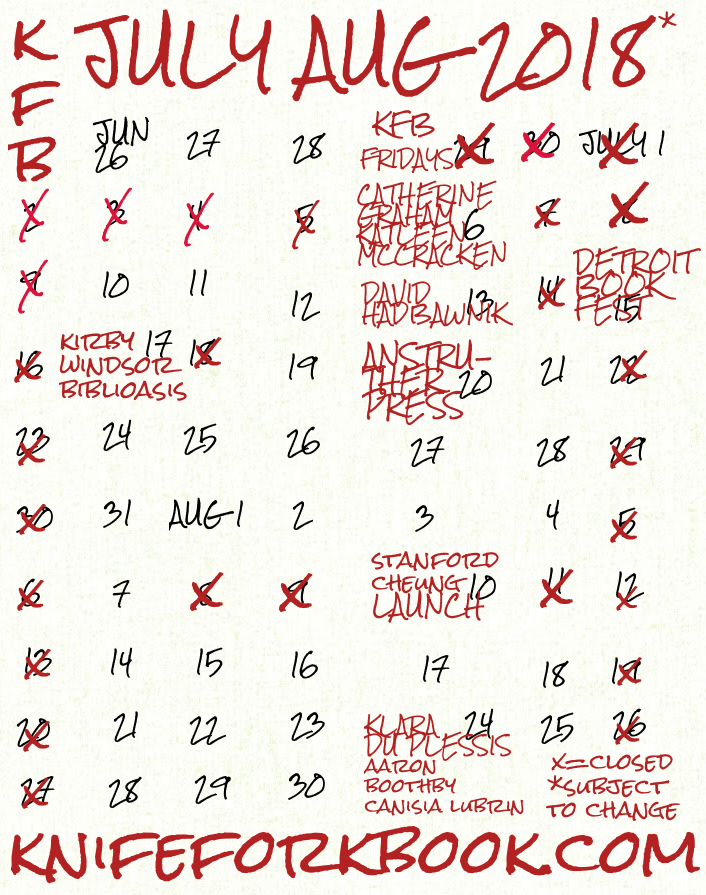 KFB
JULY AUG 2018*
JUN 26 27 28 KFB FRIDAYS 29 30 JULY 1
2 3 4 5 CATHERINE GRAHAM KATLEEN MCCRACKEN 6 7 8
9 10 11 12 DAVID HADBAWNIK 13 14 DETROIT BOOK FEST 15
16 KIRBY WINDSOR BIBLIOASIS 17 18 19 ANSTRU-THER PRESS 20 21 22
23 24 25 26 27 28 29
30 31 AUG 1 2 3 4 5
6 7 8 9 STANFORD CHEUNG LAUNCH 10 11 12
13 14 15 16 17 18 19
20 21 22 23 KLARA DU PLESSIS 24 25 26
27 28 29 30 AARON BOOTHBY CANISIA LUBRIN
X=CLOSED
*SUBJECT
TO CHANGE
KNIFEFORKBOOK.COM